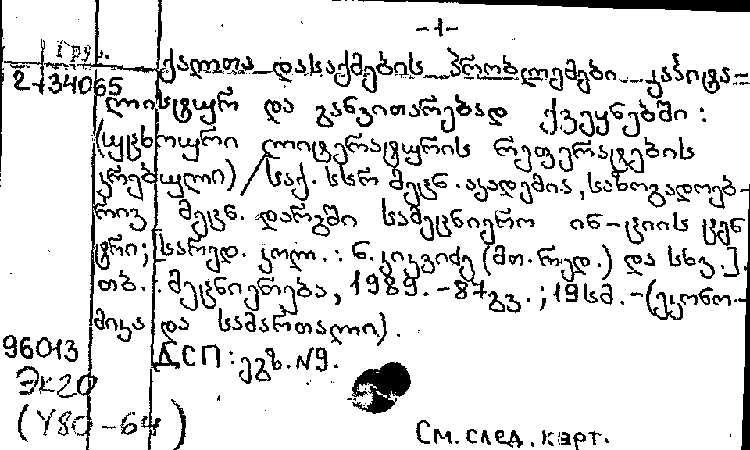 -1-
Груз.
ქალთა დასაქმების პრობლემები კაპიტა-
2-34065
ლისტურ და განვითარებად ქვეყნებში:
(უცხოური ლიტერატურის რეფერატების
კრებული) / საქ. სსრ მეცნ. აკადემია, საზოგადოებ-
რივ მეცნ. დარგში სამეცნიერო ინ-ციის ცენ
ტრი; [სარედ. კოლ.: ნ. კიკვიძე (მთ. რედ.) და სხვ.].
თბ.: მეცნიერება, 1989. -87გვ.; 19სმ. -(ეკონო-
მიკა და სამართალი).
96013
ДСП: ეგზ. N9.
Эк20
(У80-64)
См. след. карт.